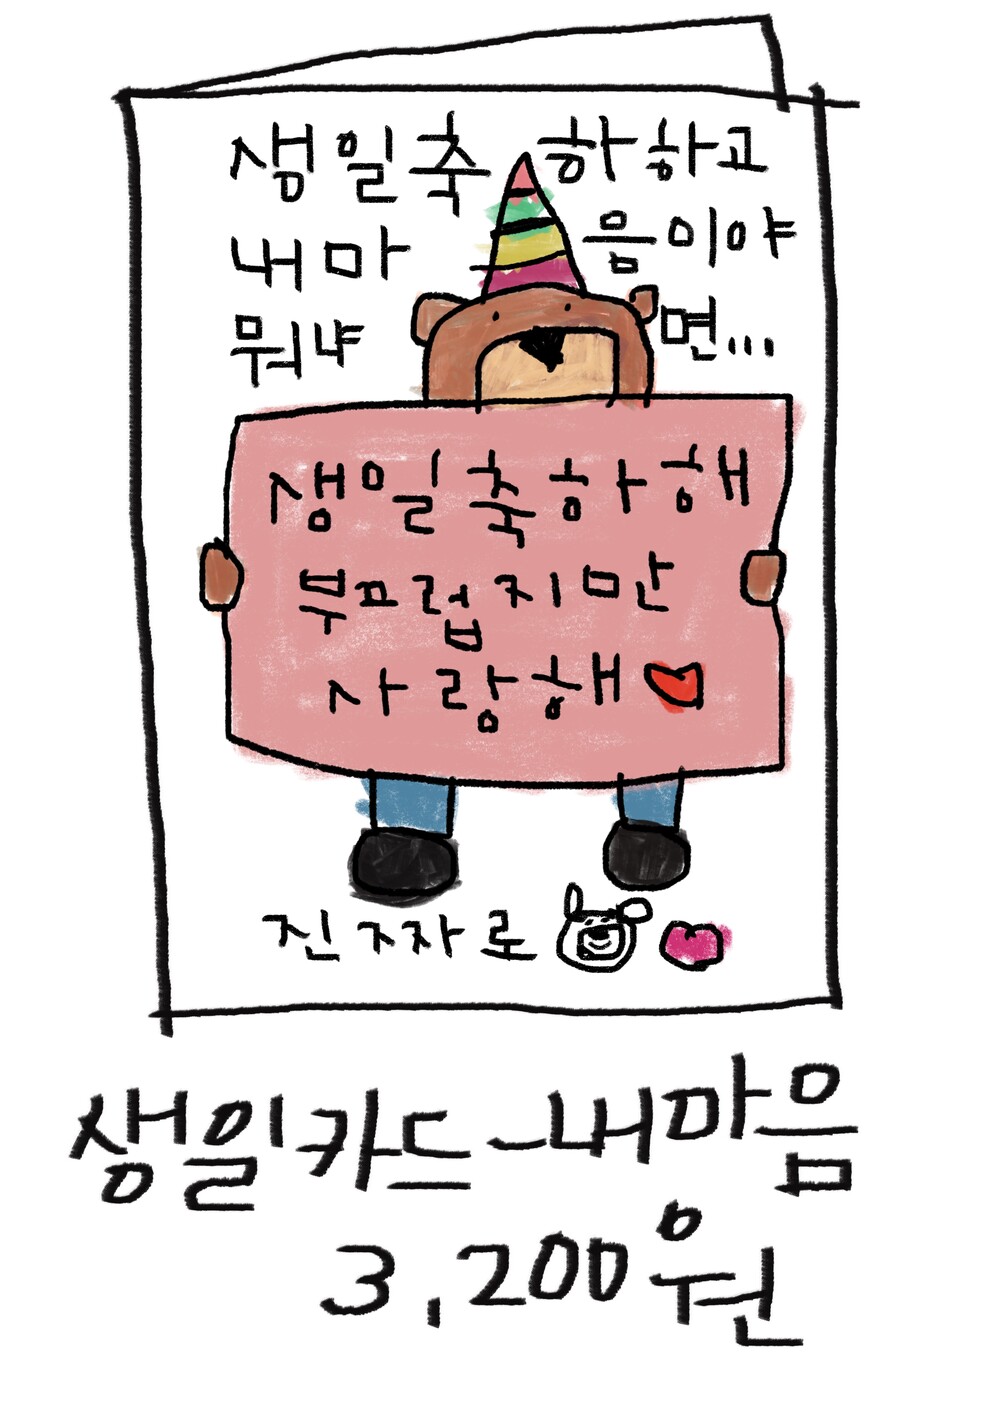 생일축하하고
내마음이야
뭐냐면...
생일축하해
부끄럽지만
사랑해
진짜로
생일카드-내마음
3,200원